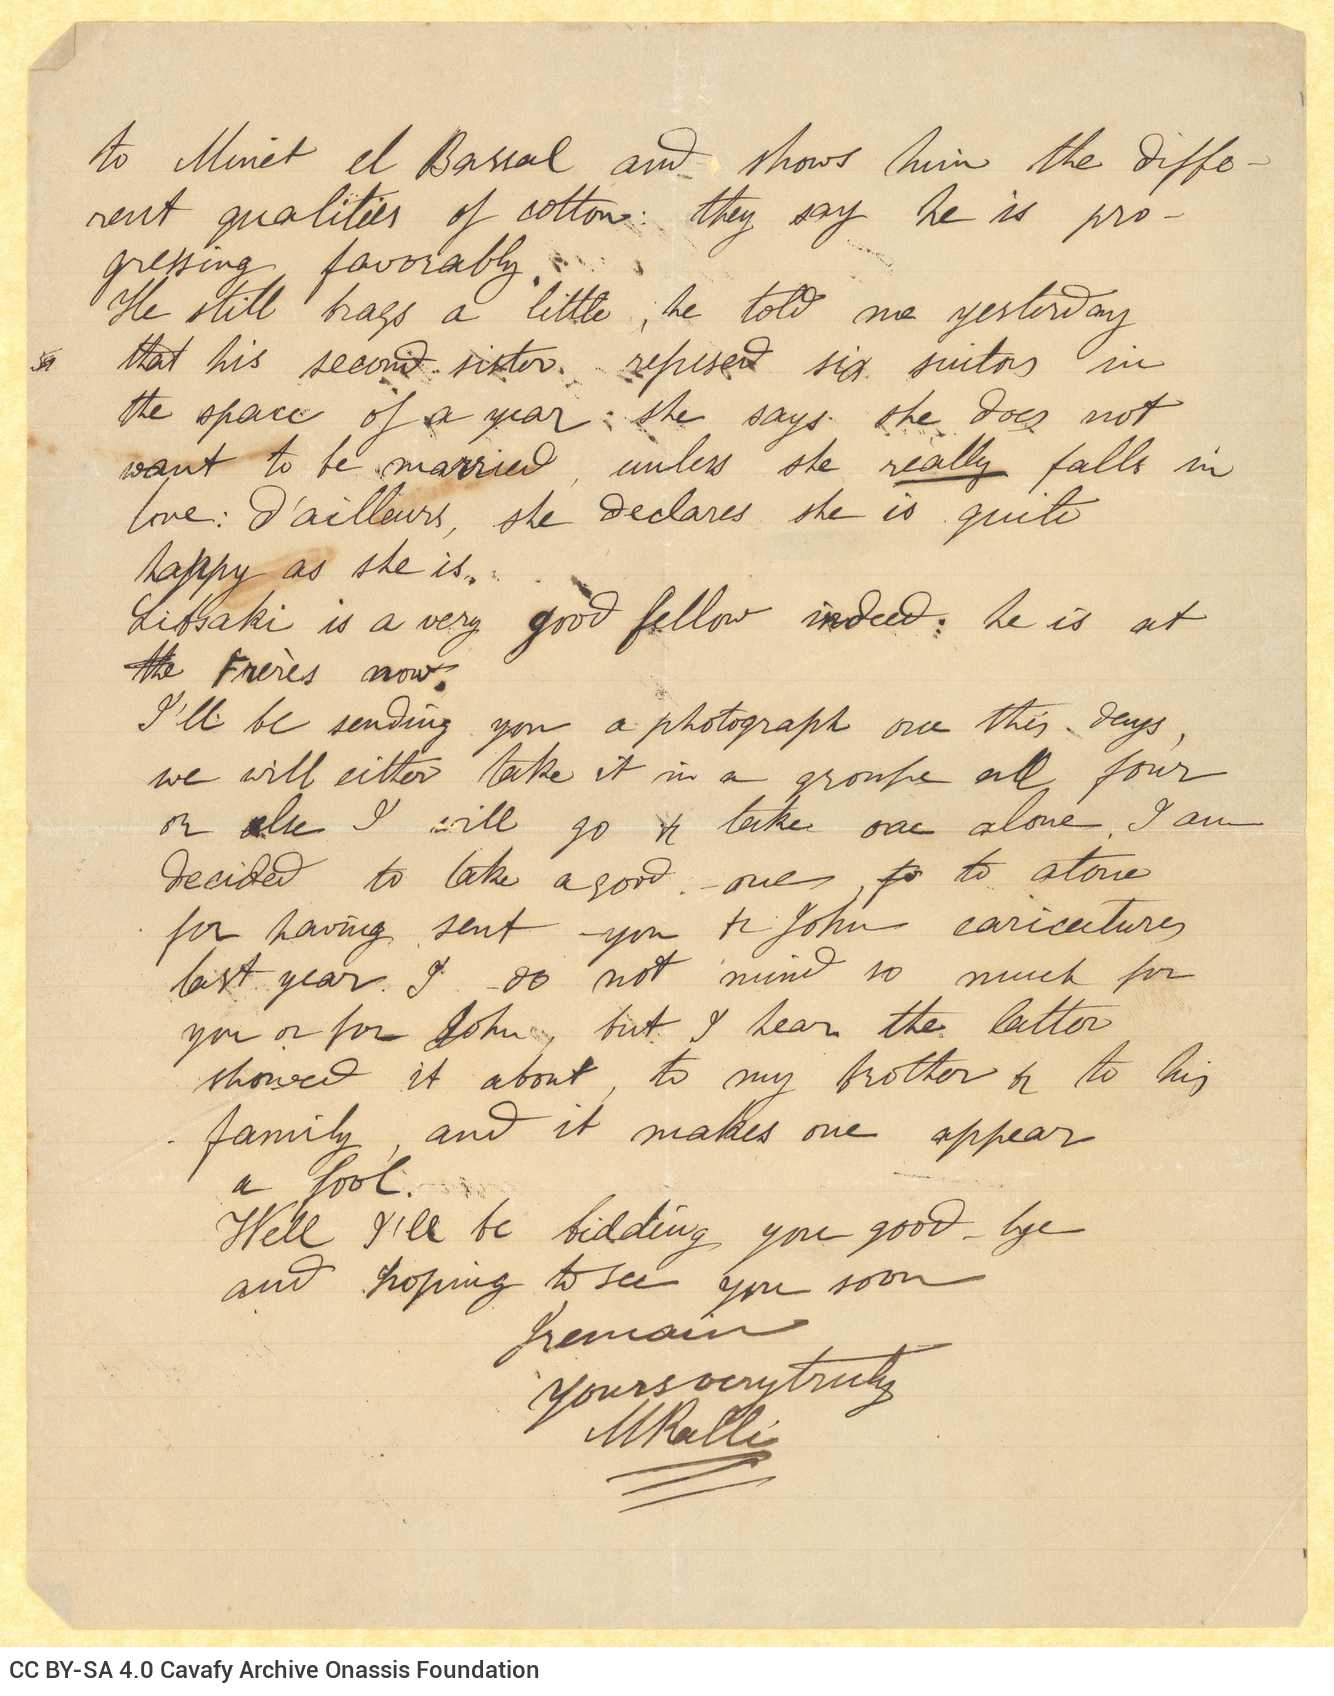 to Minet el Bassal and shows him the diffe-
rent qualities of cotton: they say he is pro-
gressing favorably.
He still brags a little, he told me yesterday
that his second sister refused six suitors in
the space of a year: she says she does not
want to be married, unless she really falls in
love: d'ailleurs, she declares she is quite
happy as she is.
Libsaki is a very good fellow indeed: he is at
the Frères now.
I'll be sending you a photograph one this days,
we will either take it in a groupe all four
or else I will go & take one alone. I am
decided to take a good one, to to atone
for having sent you & John caricatures
last year. I do not mind so much for
you or for John, but I hear the latter
showed it about, to my brother & to his
family, and it makes one appear
a fool.
Well I'll be bidding you good-bye
and hoping to see you soon
I remain
Yours very truly
MRalli
CC BY-SA 4.0 Cavafy Archive Onassis Foundation